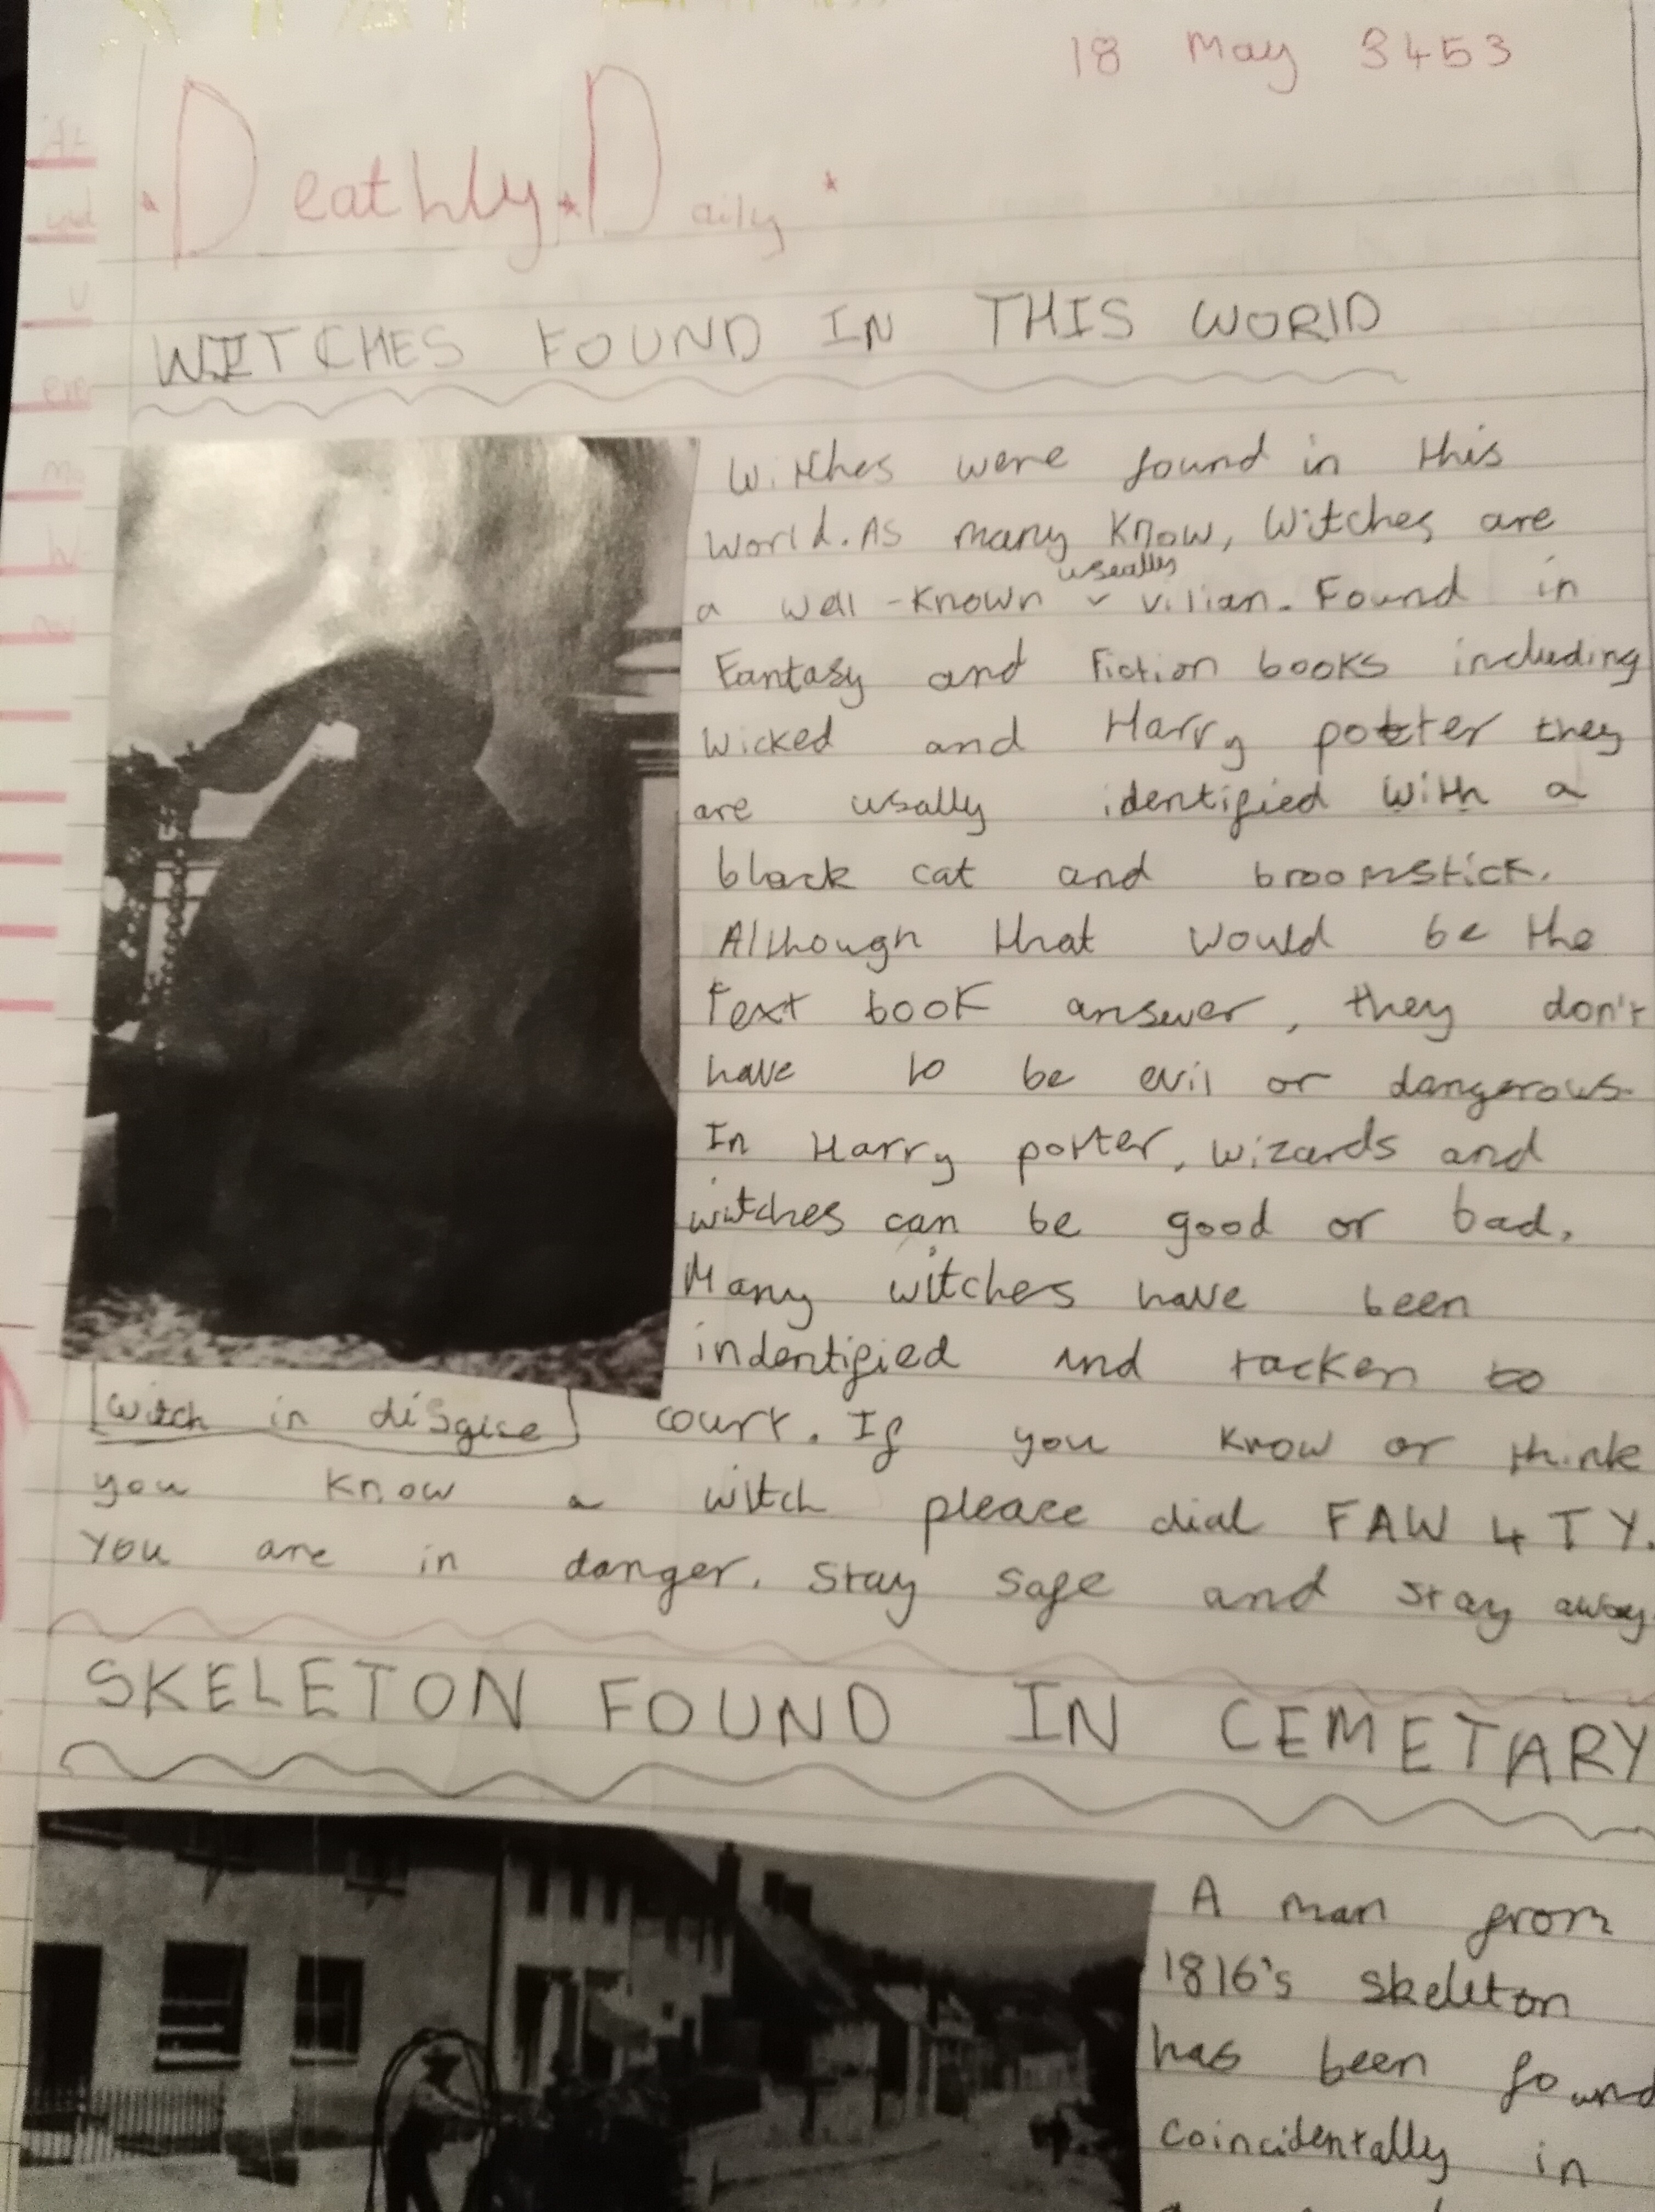 18 May 3453
Deathly Daily
WITCHES FOUND IN THIS WORLD
Witches were found in this
world. As many know, Witches are
useally
a well-known vilian. Found in
Fantasy and Fiction books including
Wicked and Harry potter they
are usally identified with a
black cat and broomstick.
Although that would be the
text book answer, they don't
have to be evil or dangerous.
In Harry potter, wizards and
witches can be good or bad.
Many witches have been
indentified and tacken to
witch in disgise
court. If you know or think
you know a witch please dial FAW 4 TY.
You are in danger. Stay safe and stay away
SKELETON FOUND IN CEMETARY
A man from
1816's skeleton
has been found
coincidentally in